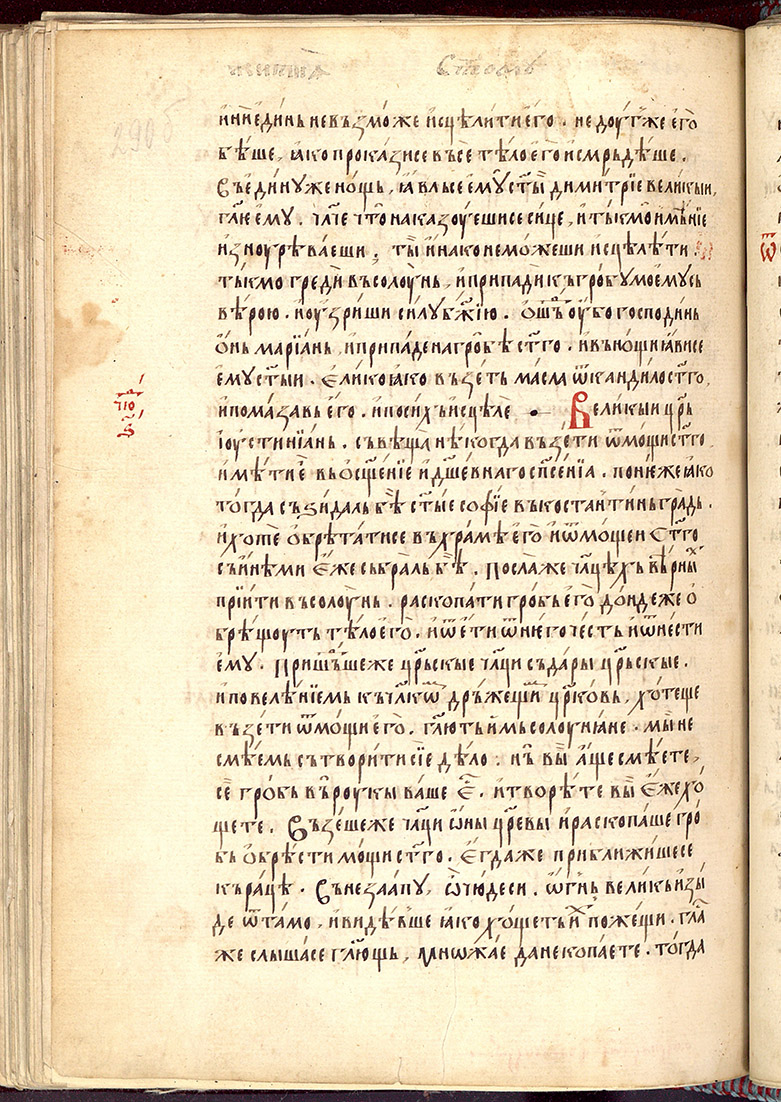 и ни єдинь не възможе исцѣлити єго . недоугже єго
бѣше , ꙗко проказисе въсе тѣло єго и смрьдѣше .
Въ єдину же нощь , ꙗвлꙗсе ємꙋ ст҃ыи димитрїе великыи ,
гл҃ѥ ємꙋ . чл҃че что наказоуешисе сице , и тькмо имѣнїе
изноурꙗваеши , ты инако не можеши исцѣлѣти .
тькмо греди въ солоунь , и припади къ гробꙋ моемꙋ съ
вѣрою . и оузриши силꙋ бж҃їю . ѡшⷣь оубо господинь
ѡнь марїань , и припаде на гробѣ ст҃го . и въ нощи ꙗвисе
ємꙋ ст҃ыи . Єлико ꙗко възеть масла ѿ кандила ст҃го ,
и помазавь єго . и по сихь исцѣле . Великыи цр҃ь
їоустинїань . съвѣща нѣкогда възети ѿ мощи ст҃го
имѣти є въ ѡсщ҃енїе и дш҃евнаго сп҃сенїа . понеже ꙗко
тогда съзидаль бѣ ст҃ыѥ софїе въ костаньтинь градь .
и хотѣ ѡбрѣтатисе въ храмѣ єго и ѿ мощеи ст҃го
съ инѣми єже сьбраль бѣ . Послаже чл҃цѣхь вѣрныⷯ
прїити въ солоунь . раскопати гробь єго дондеже ѡ
брѣщоуть тѣло єго . и ѿети ѿ него честь и ѿнести
ємꙋ . Пришⷣьшеже цр҃ьскые чл҃ци съ дары цр҃ьскые .
и повелѣнїемь къ чл҃кѡⷨ дрьжещиⷨ цр҃ковь , хотеще
възети ѿ мощи єго . гл҃ють имь солоунꙗне . мы не
смѣемь сътворити сїе дѣло . нь вы аще смѣете ,
се гробь въ роукы ваше є҃ . и творѣте вы єже хо
щете . Възешеже чл҃ци ѡны цр҃евы и раскопаше гро
бь ѡбрѣсти мощи ст҃го . єгдаже приближишесе
къ рацѣ . Вънезаапꙋ , ѽ чюдеси . ѡгⷩ҇ь великь изы
де ѿтамо . и видѣвше ꙗко хощеть иⷯ пожещи . гл҃а
же слышасе гл҃ющь , мнѡжае да не копаете . тогда